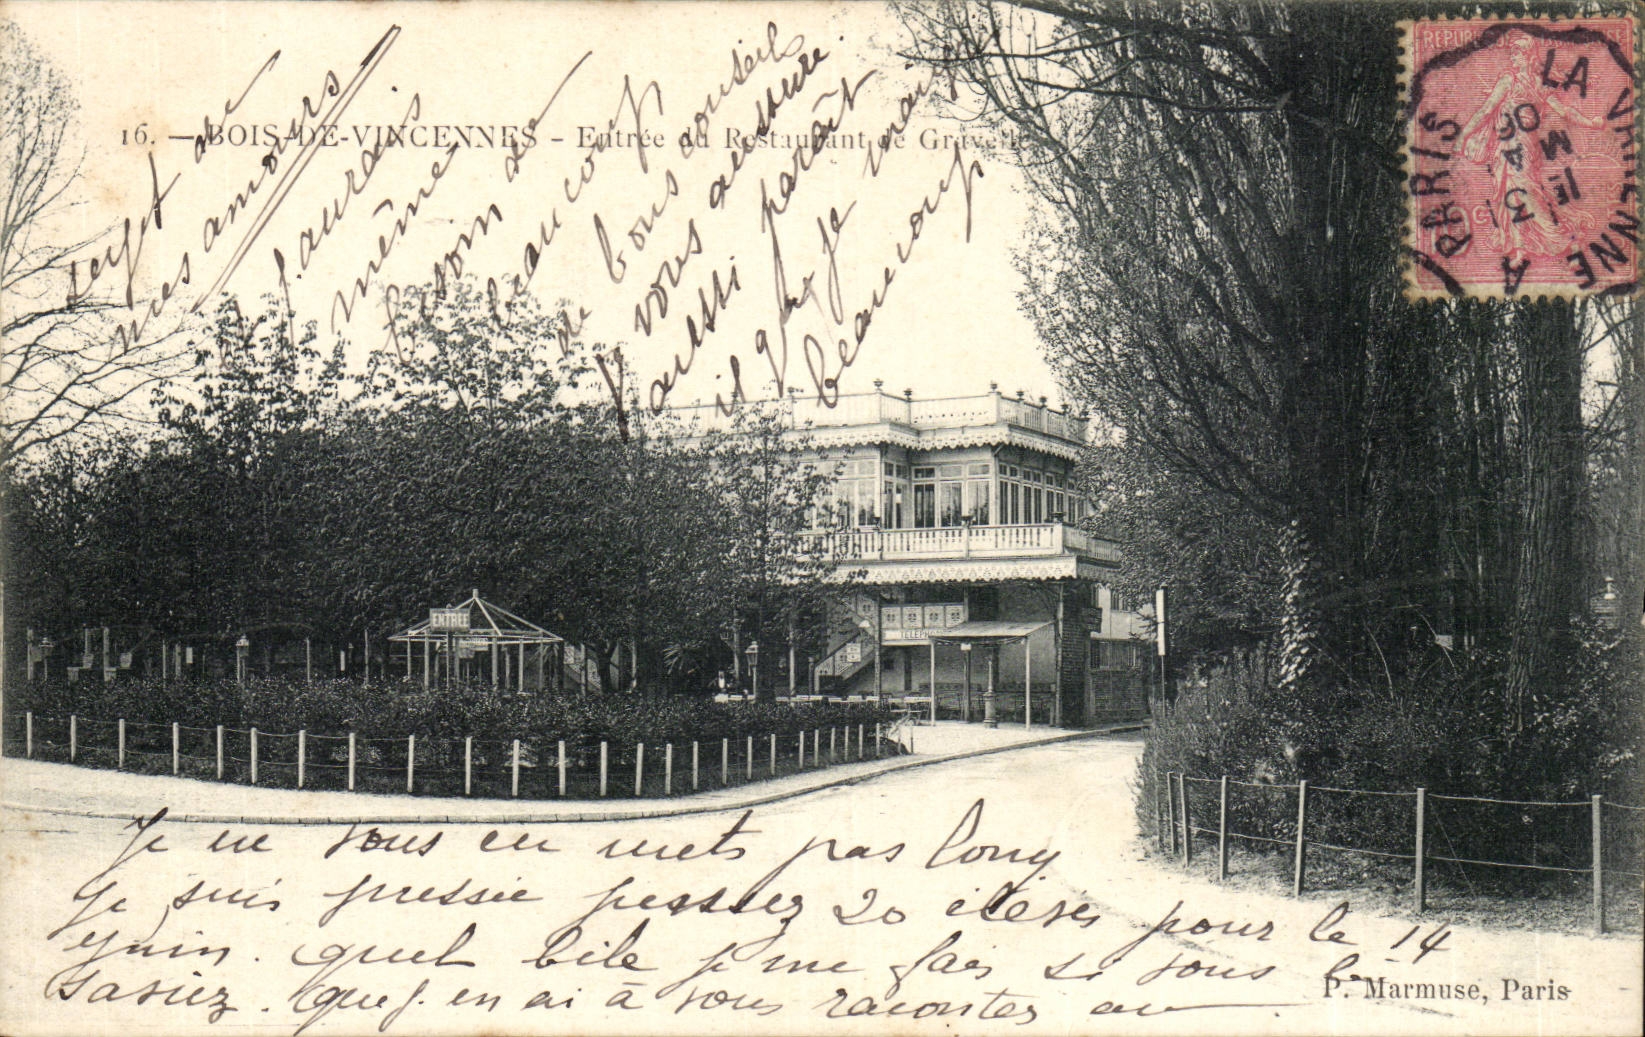 16. — BOIS-DE-VINCENNES – Entrée du Restaurant de Gravelle
REPUBLIQUE FRANCAISE
PARIS A LA VARENNE
1E
31 MA
06
ENTRÉE
TELEPHONE
Je ne vous en mets pas long
je suis pressée pensez 20 élèves pour le 14
juin. quel bile je me fais si vous le
saviez. Que j. en ai à vous raconter au
sujet de
mes amours
j. aurais
même
besoin de
beaucoup
de bons conseils
je vous assure.
aussi paraît
il que je maig
beaucoup
P. Marmuse, Paris